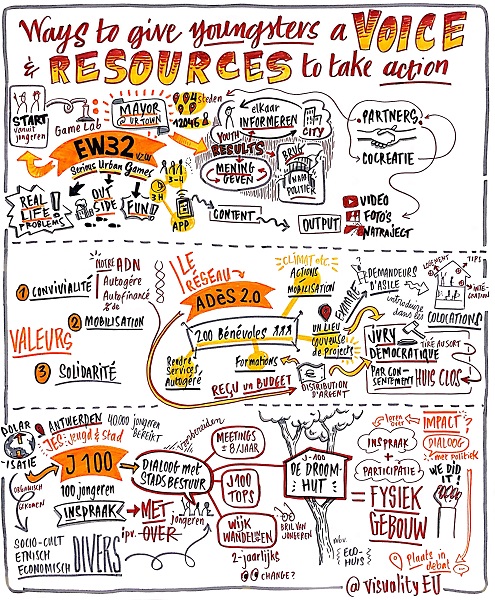 Ways to give youngsters a VOICE
& RESOURCES to take action
START
vanuit
jongeren
Game Lab
MAYOR
@ UR TOWN
4 steden
12046
elkaar
INFORMEREN
CITY
PARTNERS
COCREATIE
EW32
Serious Urban Games
YOUTH
RESULTS
MENING
GEVEN
BRUG
POLITIEK
REAL
LIFE
PROBLEMS!
OUT
SIDE
FUN!
3-4
3H
APP
CONTENT
OUTPUT
VIDEO
FOTO'S
NATRAJECT
VALEURS
1 CONVIVIALITÉ
2 MOBILISATION
3 SOLIDARITÉ
NOTRE ADN
Autogéré
Autofinancé
LE
RÉSEAU
ADÈS 2.0
200 Bénévoles
Rendre
Services
Autogéré
Formations
REÇU UN BUDGET
DISTRIBUTION
D'ARGENT
CLIMAT etc.
ACTIONS
MOBILISATION
UN LIEU
COUVEUSE
de Projets
DEMANDEURS
D'ASILE
introduire
dans les
LOGEMENT
TIPS
INTÉ-
GRATION
COLOCATIONS
JURY
DÉMOCRATIQUE
TIRÉ AU SORT
PAR CON-
SENTEMENT
HUIS CLOS
POLAR
ISATIE
ANTWERPEN
JES: jeugd & stad
40.000 jongeren
BEREIKT
J100
100 jongeren
INSPRAAK
ORGANISCH
GEKOMEN
SOCIO-CULT
ETNISCH
ECONOMISCH
DIVERS
DIALOOG met
STADSBESTUUR
MET
jongeren
ipv. OVER
voorbereiden
MEETINGS
± 8/JAAR
J100
TOPS
WIJK
WANDELINGEN
2-jaarlijks
CHANGE?
BRIL VAN
JONGEREN
J-100
DE DROOM-
HUT
mbv.
ECO-
HUIS
leren over
IMPACT?
INSPRAAK
+
PARTICIPATIE
DIALOOG
met politiek
WE DID
IT!
= FYSIEK
GEBOUW
Plaats in
debat
@visualityEU